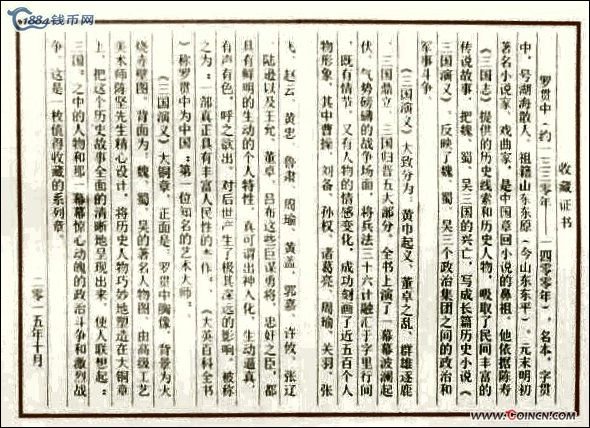 1884钱币网
收藏证书
罗贯中（约一三三〇年——一四〇〇年），名本，字贯
中，号湖海散人，祖籍山东东原（今山东东平）。元末明初
著名小说家、戏曲家，是中国章回小说的鼻祖。他依据陈寿
《三国志》提供的历史线索和历史人物，吸取了民间丰富的
传说故事，把魏、蜀、吴三国的兴亡，写成长篇历史小说《
三国演义》，反映了魏、蜀、吴三个政治集团之间的政治和
军事斗争。
《三国演义》大致分为：黄巾起义、董卓之乱、群雄逐鹿
、三国鼎立、三国归晋五大部分，全书上演了一幕幕波澜起
伏、气势磅礴的战争场面，将兵法三十六计融汇于字里行间
，既有情节，又有人物的情感变化，成功刻画了近五百个人
物形象，其中曹操、刘备、孙权、诸葛亮、周瑜、关羽、张
飞、赵云、黄忠、鲁肃、周瑜、黄盖、郭嘉、许攸、张辽
、陆逊以及王允、董卓、吕布这些巨谋勇将，忠奸之臣，都
具有鲜明的生动的个人特性，真可谓出神入化，生动逼真，
有声有色，呼之欲出。对后世产生了极其深远的影响，被称
之为：一部真正具有丰富人民性的杰作。《大英百科全书
》称罗贯中为中国：第一位知名的艺术大师：。
《三国演义》大铜章，正面是：罗贯中胸像，背景为火
烧赤壁图，背面为：魏、蜀、吴的著名人物图，由高级工艺
美术师陈坚先生精心设计，将历史人物巧妙地塑造在大铜章
上，把这个历史故事全面的清晰地呈现出来，使人联想起：
三国：之中的人物和那一幕幕惊心动魄的政治斗争和激烈战
争。这是一枚值得收藏的系列章。
二零一五年十月
www.COINCN.com